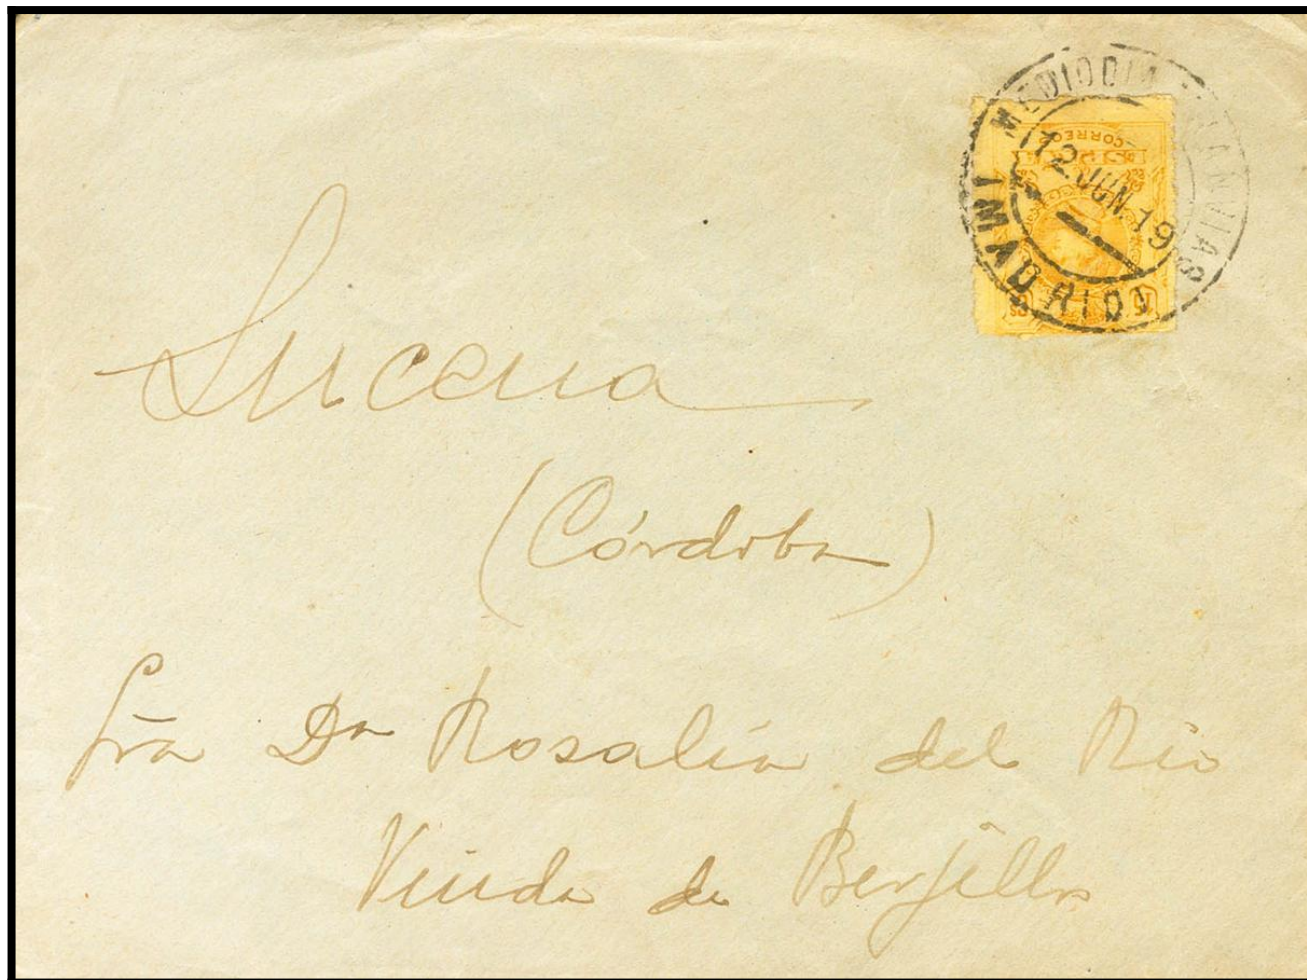 MEDIODIA
12 JUN. 19
MADRID
CORREOS
15 Cs
Lucena
(Córdoba)
Sra Da Rosalía del Río
Viuda de Berjillos